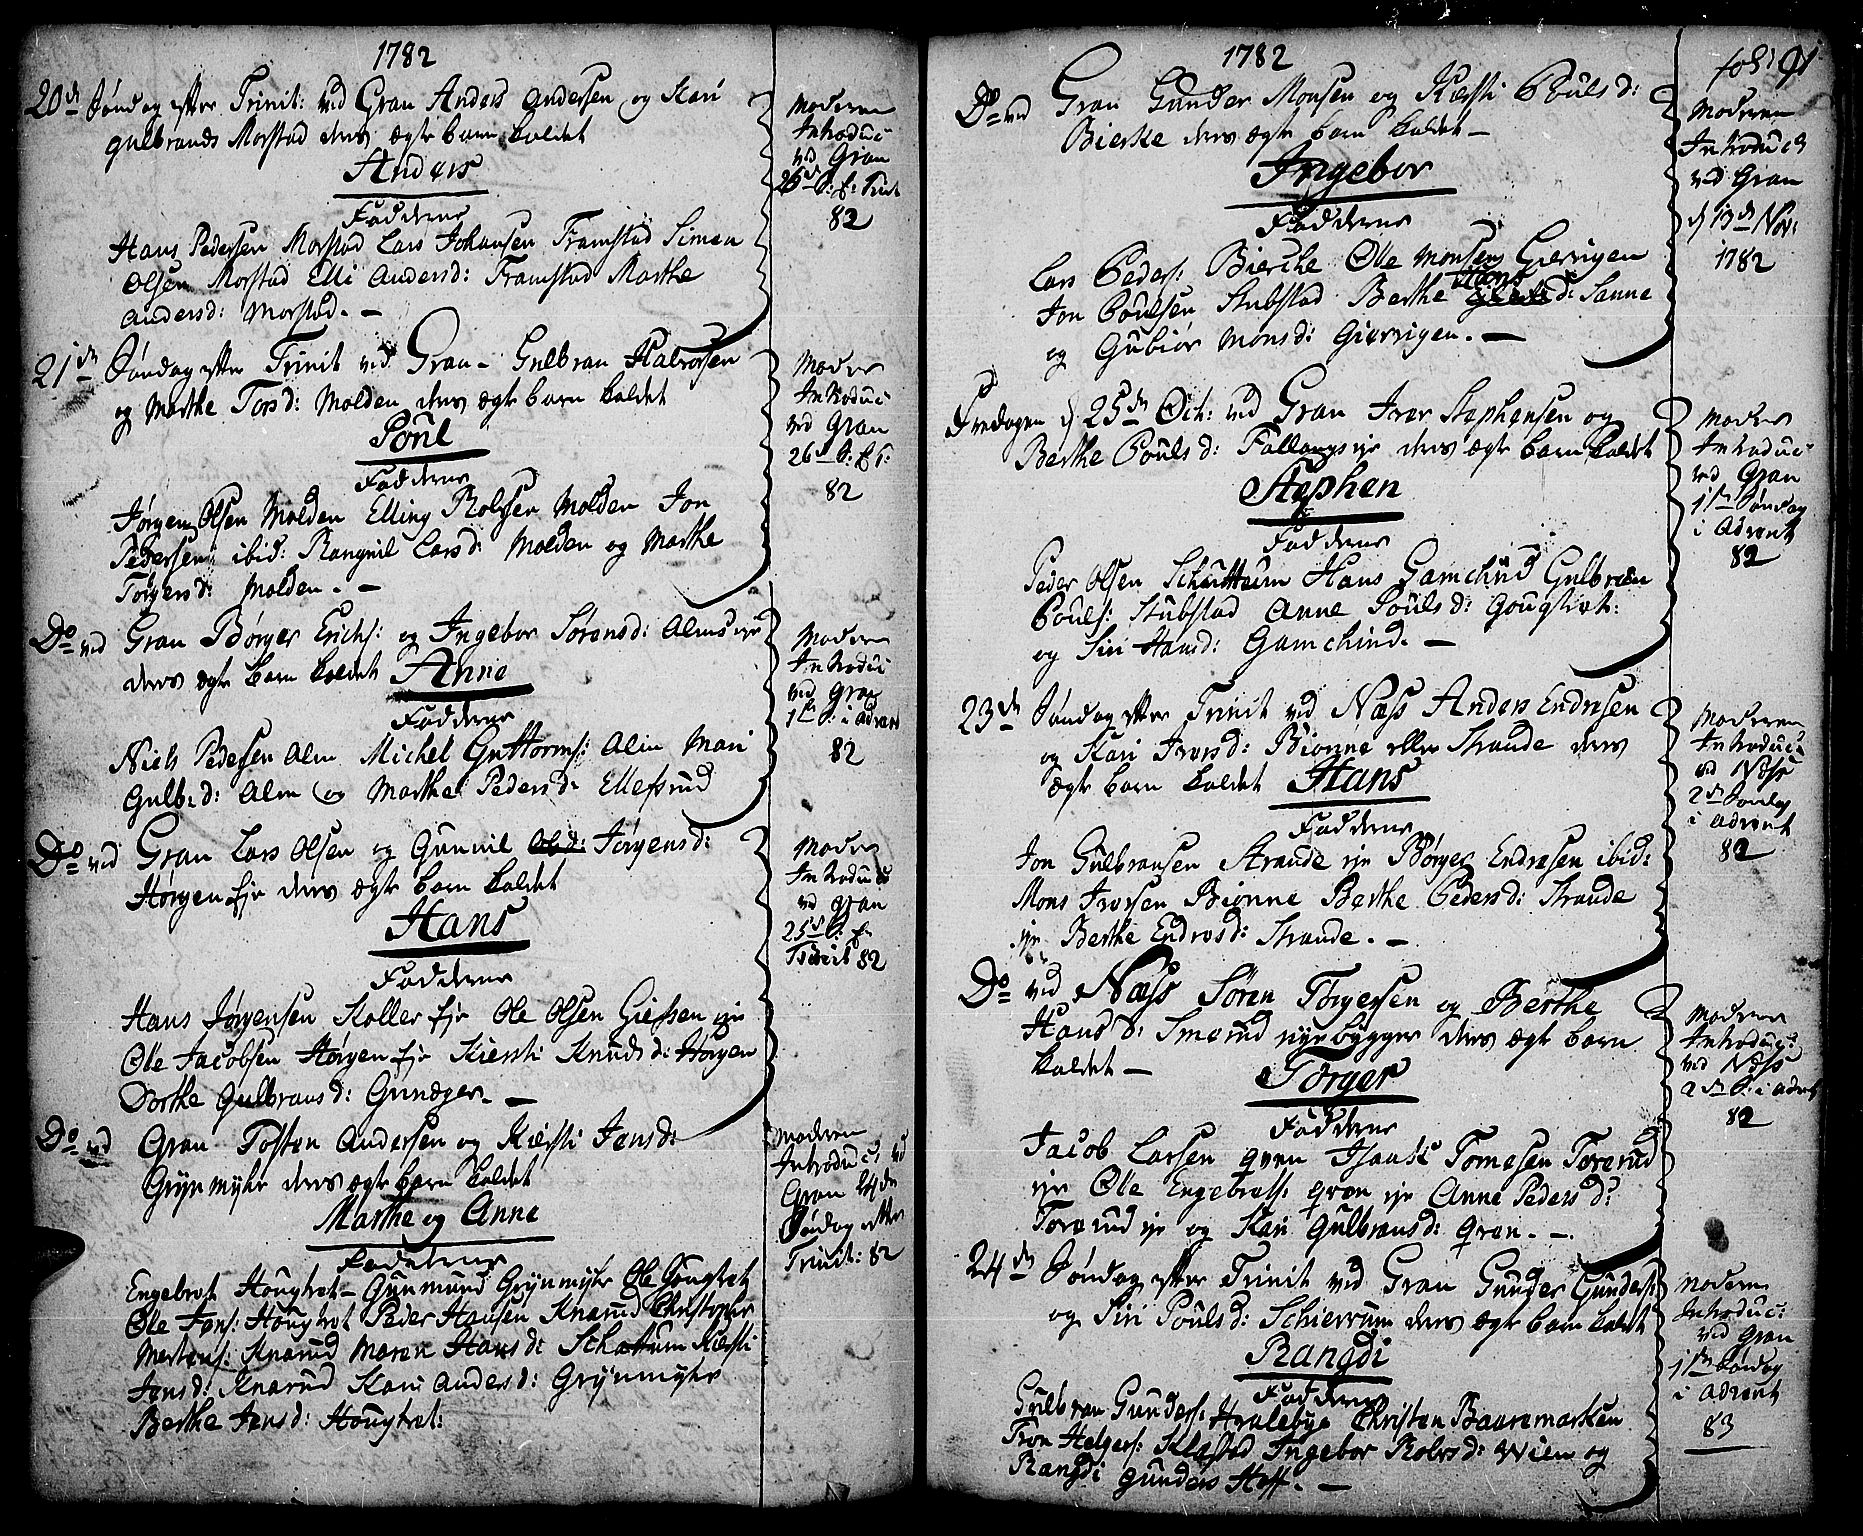 1782
20de Søndag efter Trinit: ved Gran Anders Andersen og Kari
gulbrands Morstad ders ægte barn kaldet
Anders
Fadderne
Hans Pedersen Morstad Lars Johansen Framstad Simen
Olsen Morstad Elli Andersd: Framstad Marthe
Andersd: Morstad. —
Moderen
Introduc:
ved Gran
26de S: E: Trinit
82
21de Søndag efter Trinit ved Gran — Gulbran Halvorsen
og Marthe Torsd: Molden ders ægte barn kaldet
Poul
Fadderne
Jørgen Olsen Molden Elling Rolvsen Molden Jon
Pedersen ibid: Rangnil Larsd: Molden og Marthe
Torgersd: Molden. —
Moder
Introduc:
ved Gran
26de S: E T:
82
Do ved Gran Børger Erichs: og Ingebor Sørensd: Alms eje
ders ægte barn kaldet Anne
Fadderne
Niels Pedersen Alm Michel Guttorms: Alm Mari
Gulb:d: Alm og Marthe Pedersd: Ellefsrud
Moderen
Introduc
ved Gran
1ste S: i Advent
82
Do ved Gran Lars Olsen og Gunnil Olsd: Jørgensd:
Hørgen Eje ders ægte barn kaldet
Hans
Fadderne
Hans Jørgensen Koller Eje Ole Olsen Giefsen eje
Ole Jacobsen Hørgen Eje Kiersti Knudsd: Hørgen
Dorthe Gulbransd: Gunæger. —
Moder
Introduc
ved gran
25de S: E:
Trinit 82
Do ved Gran Tosten Andersen og Kiersti Jensd:
Grynmyhr ders ægte barn kaldet
Marthe og Anne
Fadderne
Engebret Hougtvet — Gunmund Grynmyhr Ole Hougtvet
Ole Jens: Hougtvet Peder Hansen Knarud Christopher
Mortens: Knarud Maren Hansd: Schattum Kiersti
Jensd: Knarud Kari Andersd: Grynmyhr
Berthe Jensd: Hougtvet:
Moderen
Introduc: ved
Gran 24de
Søndag efter
Trinit: 82
1782
fol: 91
Do ved Gran Gunder Monsen og Kiersti Poulsd:
Bierke ders ægte barn kaldet —
Ingebor
Fadderne
Lars Peders: Bierche Ole Monsen Gierrigen
Jon Poulsen Stubstad Berthe Hansd: Sanne
og Gubiør Monsd: Gierrigen. —
Moderen
Introduc:
ved Gran
d 13de Nov:
1782
Fredagen d 25de Oct: ved Gran Iver Stephensen og
Berthe Poulsd: Fallangs eje ders ægte barn kaldet
Stephen
Fadderne
Peder Olsen Schuttum Hans Gamchind Gulbran
Pouls: Stubstad Anne Poulsd: Hougtvet:
og Siri Hansd: Gamchind. —
Moder
Introduc:
ved Gran
1ste Søndag
i Advent
82
23de Søndag efter Trinit ved Næss Anders Endresen
og Kari Iversd: Bionne eller Strande ders
ægte barn kaldet Hans
Fadderne
Jon Gulbransen Strande eje Børger Endresen ibid:
Mons Iversen Bionne Berthe Pedersd: Strande
eje Berthe Endresd: Strande. —
Moderen
Introduc:
ved Næss
2de Søndag
i Advent
82
Do ved Næss Søren Torgersen og Berthe
Hansd: Smerud nye bygger ders ægte barn
kaldet —
Torger
Fadderne
Jacob Larsen qven Isaach Tomesen Torerud
eje Ole Engebrets: gran eje Anne Pedersd:
Torerud eje og Kari Gulbransd: gran. —
Moderen
Introduc:
ved Næss
2de S: i Advent
82
24de Søndag efter Trinit ved Gran Gunder Gunders:
og Siri Poulsd: Schierrum ders ægte barn kaldet
Rangdi
Fadderne
Gulbran Gunders: Hvalebye Christen Baaremarken
Tron Helgers: Klæstad Ingebor Rolvsd: Wien og
Rangdi Gunders Hoff. —
Moderen
Introduc:
ved Gran
1ste Søndag
i Advent
83